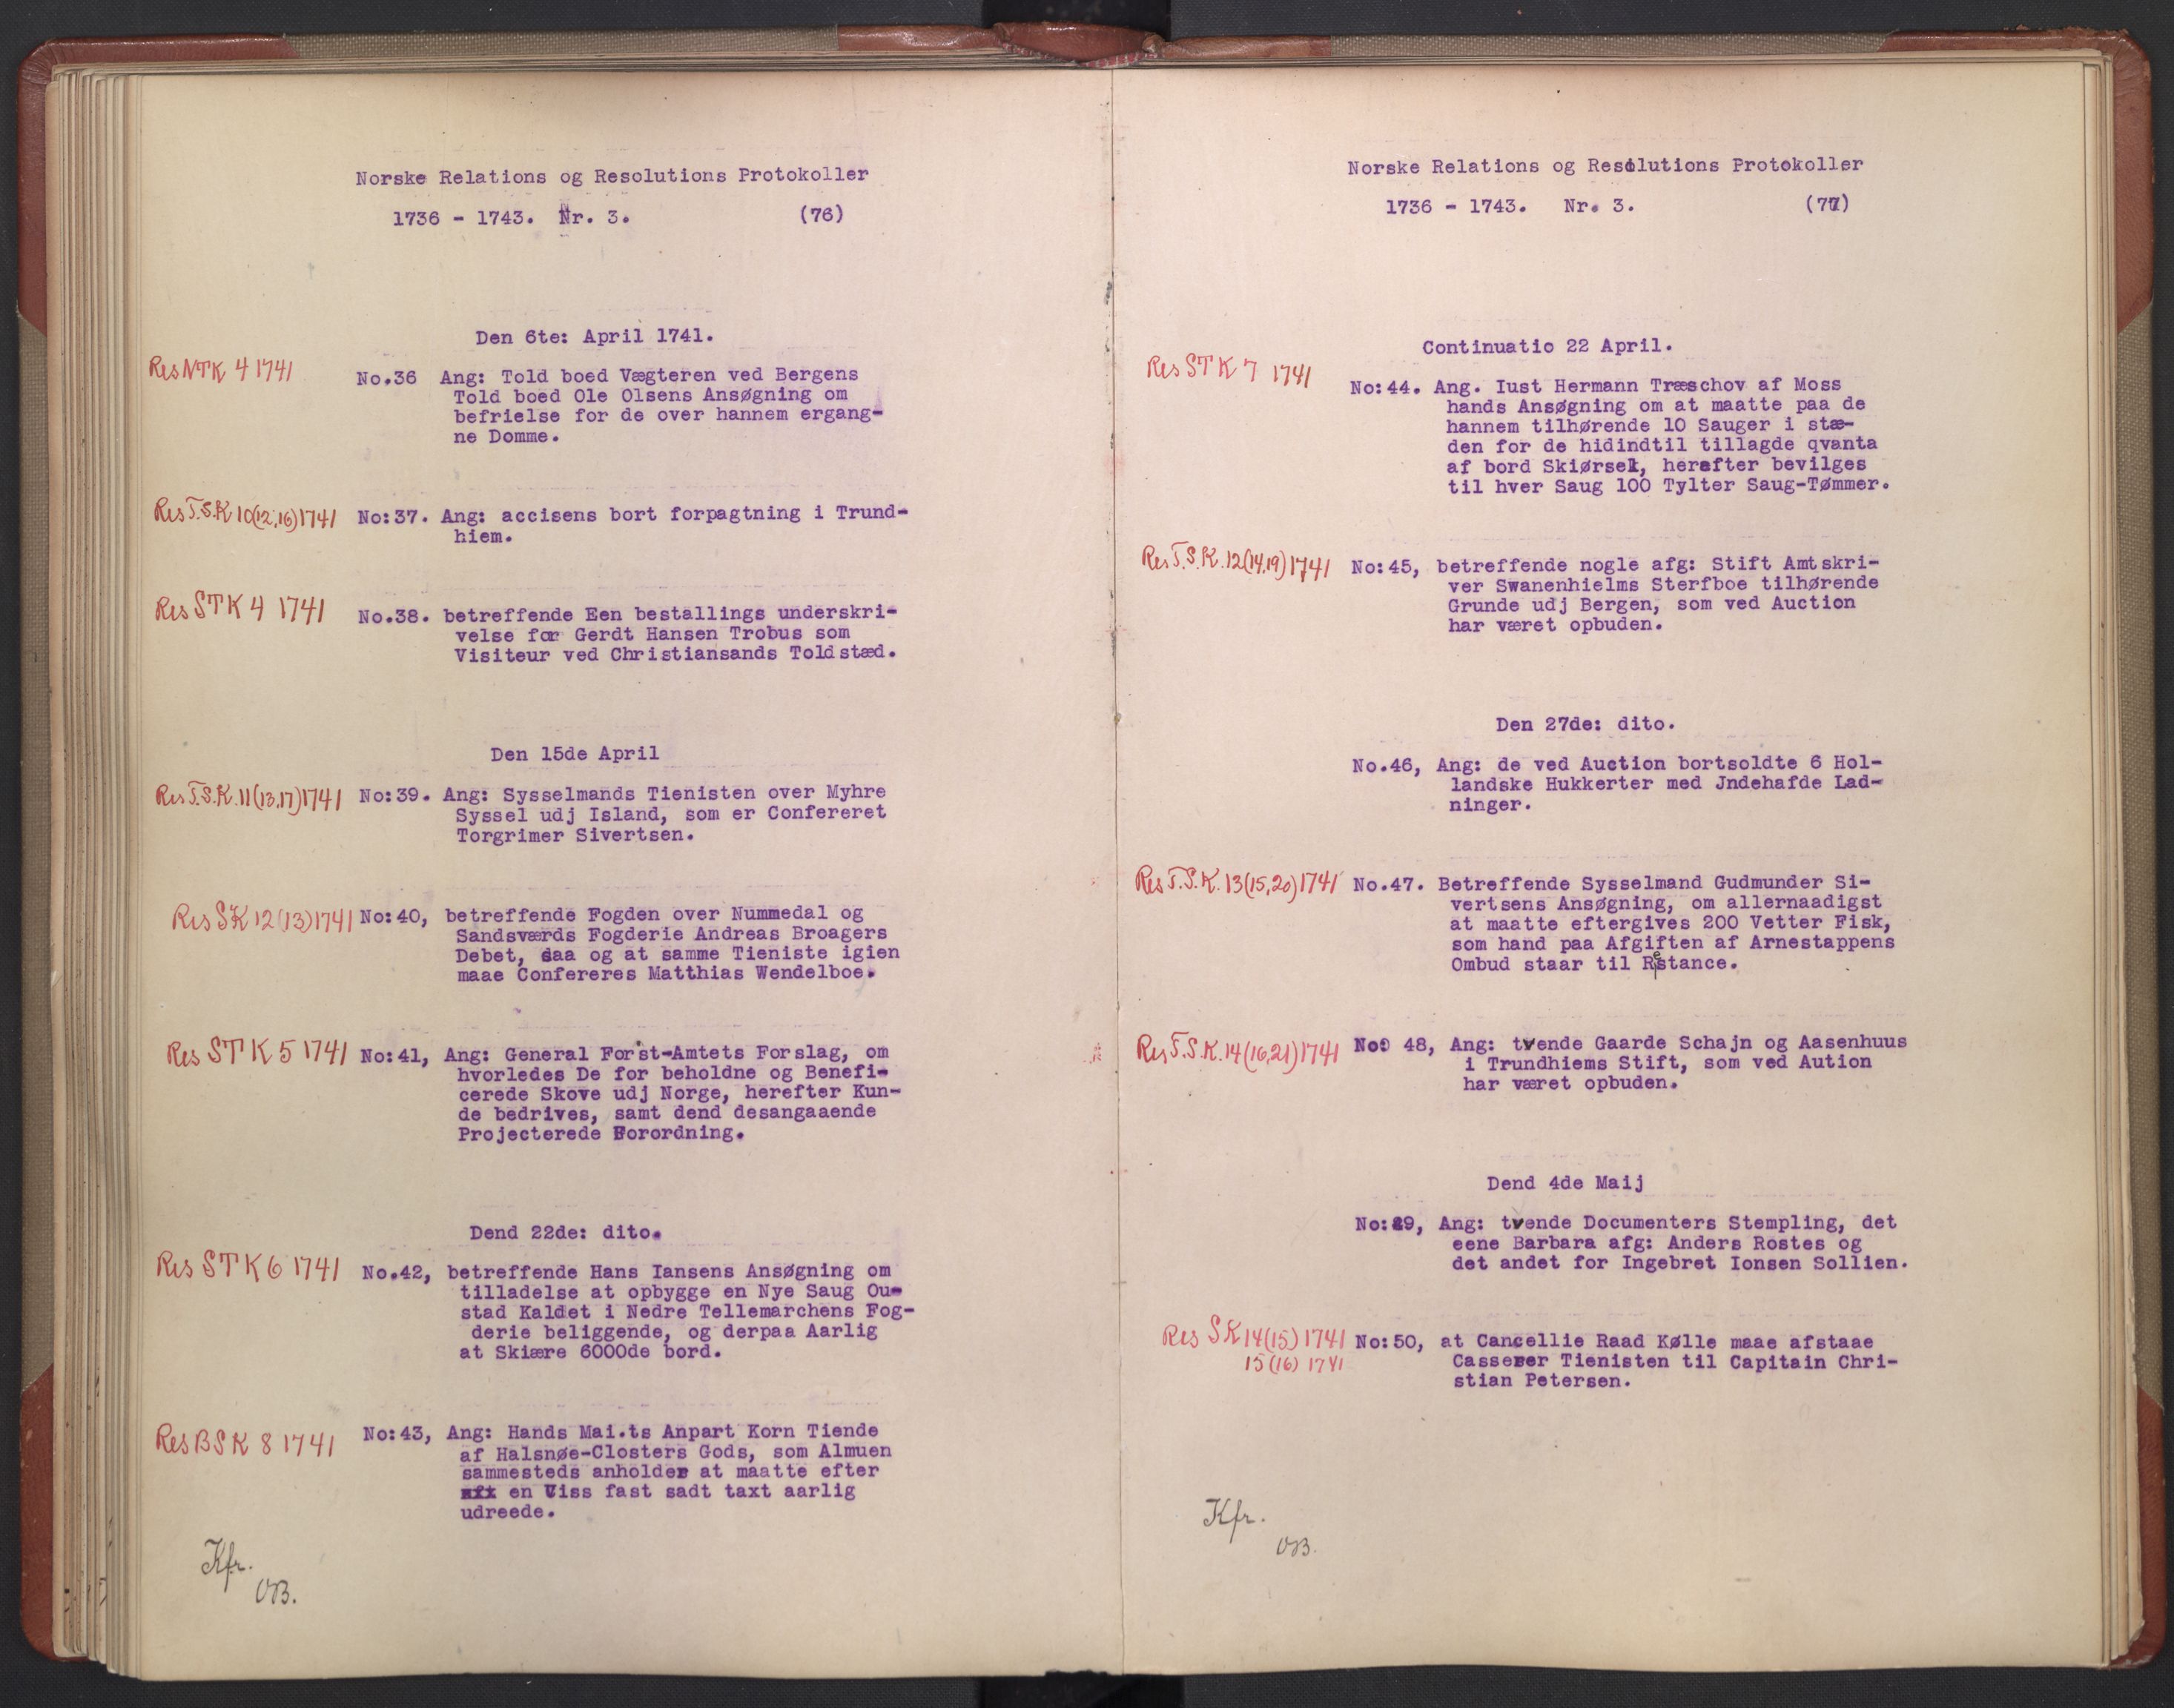 Norske Relations og Resolutions Protokoller
1736 - 1743. Nr. 3. (76)
Den 6te: April 1741.
Res NTK 4 1741
No.36 Ang: Told boed Vægteren ved Bergens
Told boed Ole Olsens Ansøgning om
befrielse for de over hannem ergang-
ne Domme.
Res T.S.K 10(12,16)1741 No:37. Ang: accisens bort forpagtning i Trund-
hiem.
Res STK 4 1741 No.38. betreffende Een bestallings underskri-
velse for Gerdt Hansen Trobus som
Visiteur ved Christiansands Toldstæd.
Den 15de April
Res T.S.K. 11(13,17)1741 No:39. Ang: Sysselmands Tienisten over Myhre
Syssel udj Island, som er Confereret
Torgrimer Sivertsen.
Res SK 12(13)1741 No:40, betreffende Fogden over Nummedal og
Sandsværds Fogderie Andreas Broagers
Debet, saa og at samme Tieniste igien
maae Confereres Matthias Wendelboe.
Res STK 5 1741 No:41, Ang: General Forst-Amtets Forslag, om
hvorledes De for beholdne og Benefi-
cerede Skove udj Norge, herefter Kun-
de bedrives, samt dend desangaaende
Projecterede Forordning.
Dend 22de: dito.
Res STK 6 1741 No.42, betreffende Hans Iansens Ansøgning om
tilladelse at opbygge en Nye Saug Ou-
stad Kaldet i Nedre Tellemarchens Fog-
derie beliggende, og derpaa Aarlig
at Skiære 6000de bord.
Res BSK 8 1741 No:43, Ang: Hands Mai.ts Anpart Korn Tiende
af Halsnøe-Closters Gods, som Almuen
sammesteds anholder at maatte efter
en Viss fast sadt taxt aarlig
udreede.
Kfr.
OB.
Norske Relations og Resolutions Protokoller
1736 - 1743. Nr. 3. (77)
Continuatio 22 April.
Res STK 7 1741
No:44. Ang. Iust Hermann Træschov af Moss
hands Ansøgning om at maatte paa de
hannem tilhørende 10 Sauger i stæ-
den for de hidindtil tillagde qvanta
af bord Skiørsel, herefter bevilges
til hver Saug 100 Tylter Saug-Tømmer.
Res T.S.K. 12(14,19)1741 No:45, betreffende nogle afg: Stift Amtskri-
ver Swanenhielms Sterfboe tilhørende
Grunde udj Bergen, som ved Auction
har været opbuden.
Den 27de: dito.
No.46, Ang: de ved Auction bortsoldte 6 Hol-
landske Hukkerter med Jndehafde Lad-
ninger.
Res T.S.K. 13(15,20)1741 No.47. Betreffende Sysselmand Gudmunder Si-
vertsens Ansøgning, om allernaadigst
at maatte eftergives 200 Vetter Fisk,
som hand paa Afgiften af Arnestappens
Ombud staar til Restance.
Res T.S.K. 14(16,21)1741 No: 48, Ang: tvende Gaarde Schajn og Aasenhuus
i Trundhiems Stift, som ved Aution
har været opbuden.
Dend 4de Maij
No:49, Ang: tvende Documenters Stempling, det
eene Barbara afg: Anders Rostes og
det andet for Ingebret Ionsen Sollien.
Res SK 14(15) 1741 No:50, at Cancellie Raad Kølle maae afstaae
15(16) 1741 Casserer Tienisten til Capitain Chri-
stian Petersen.
Kfr.
OB.